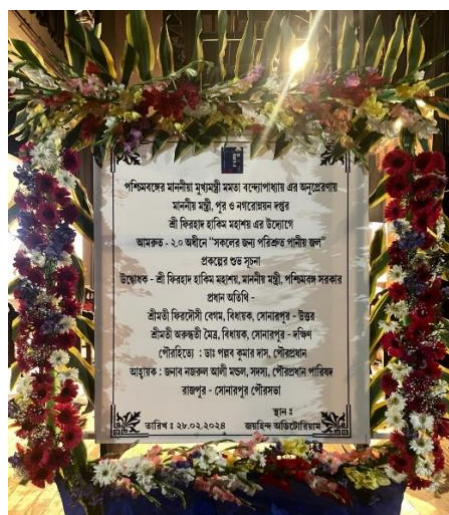 পশ্চিমবঙ্গের মাননীয়া মুখ্যমন্ত্রী মমতা বন্দ্যোপাধ্যায় এর অনুপ্রেরণায়
মাননীয় মন্ত্রী, পুর ও নগরোন্নয়ন দপ্তর
শ্রী ফিরহাদ হাকিম মহাশয় এর উদ্যোগে
আমরুত - ২.০ অধীনে "সকলের জন্য পরিশ্রুত পানীয় জল"
প্রকল্পের শুভ সূচনা
উদ্বোধক - শ্রী ফিরহাদ হাকিম মহাশয়, মাননীয় মন্ত্রী, পশ্চিমবঙ্গ সরকার
প্রধান অতিথি -
শ্রীমতী ফিরদৌসী বেগম, বিধায়ক, সোনারপুর - উত্তর
শ্রীমতী অরুন্ধতী মৈত্র, বিধায়ক, সোনারপুর - দক্ষিণ
পৌরহিত্যে : ডাঃ পল্লব কুমার দাস, পৌরপ্রধান
আহ্বায়ক : জনাব নজরুল আলী মন্ডল, সদস্য, পৌরপ্রধান পারিষদ
রাজপুর - সোনারপুর পৌরসভা
স্থান ঃ
তারিখ ঃ ২৮.০২.২০২৪ জয়হিন্দ অডিটোরিয়াম